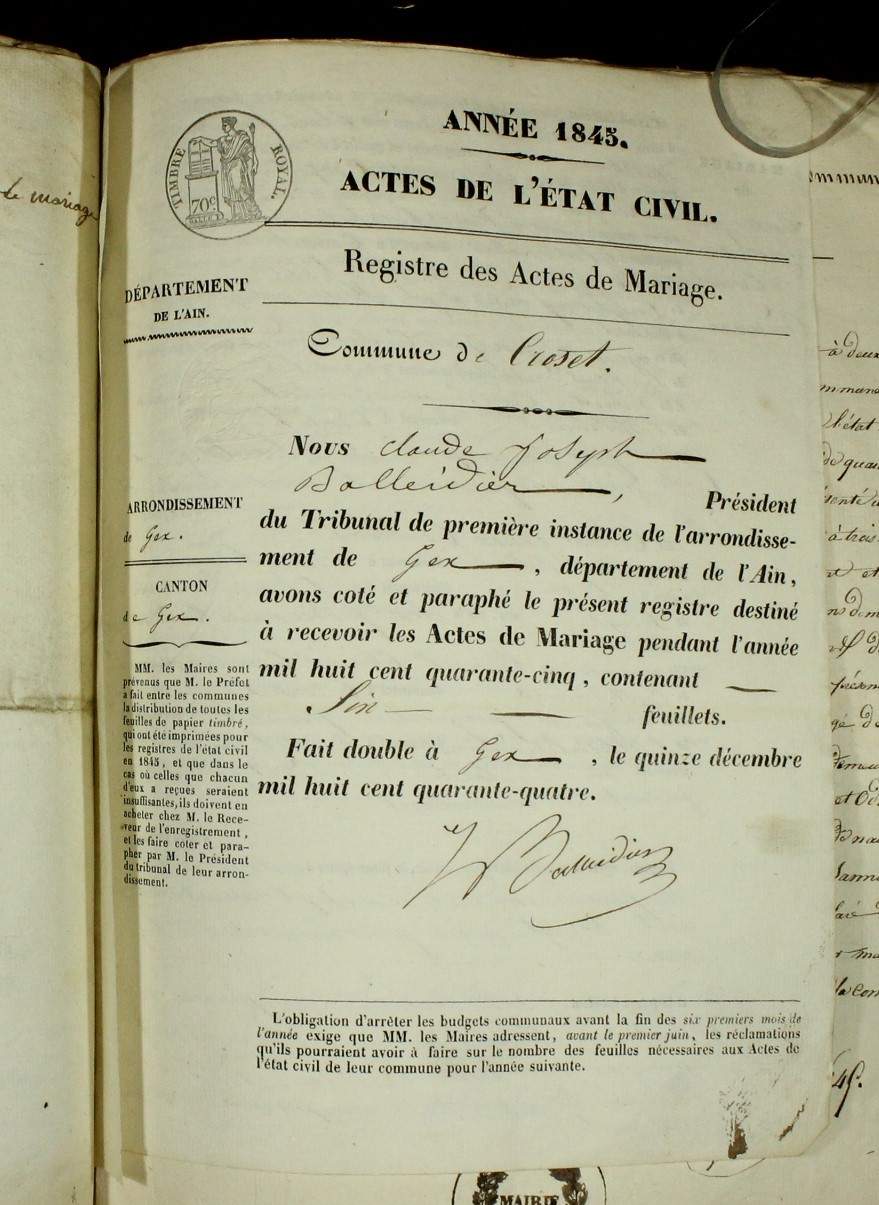 de mariage
TIMBRE ROYAL.
70c
ANNÉE 1845.
ACTES DE L'ÉTAT CIVIL.
Registre des Actes de Mariage.
DÉPARTEMENT
DE L'AIN.
Commune de Croset.
Nous claude Joseph
Balleidier, Président
du Tribunal de première instance de l'arrondisse-
ment de Gex, département de l'Ain,
avons coté et paraphé le présent registre destiné
à recevoir les Actes de Mariage pendant l'année
mil huit cent quarante-cinq, contenant
Six feuillets.
Fait double à Gex, le quinze décembre
mil huit cent quarante-quatre.
Balleidier
ARRONDISSEMENT
de Gex.
CANTON
de Gex.
MM. les Maires sont
prévenus que M. le Préfet
a fait entre les communes
la distribution de toutes les
feuilles de papier timbré,
qui ont été imprimées pour
les registres de l'état civil
en 1845, et que dans le
cas où celles que chacun
d'eux a reçues seraient
insuffisantes, ils doivent en
acheter chez M. le Rece-
veur de l'enregistrement,
et les faire coter et para-
pher par M. le Président
du tribunal de leur arron-
dissement.
L'obligation d'arrêter les budgets communaux avant la fin des six premiers mois de
l'année exige que MM. les Maires adressent, avant le premier juin, les réclamations
qu'ils pourraient avoir à faire sur le nombre des feuilles nécessaires aux Actes de
l'état civil de leur commune pour l'année suivante.
à deux
l'état
de quar
à trois
et
la com
45.
MAIRIE